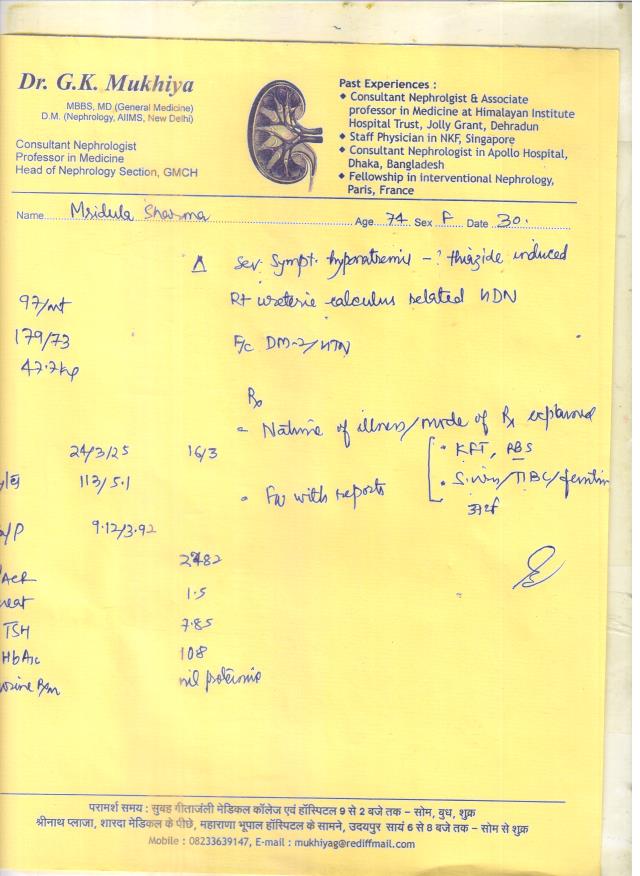 Dr. G.K. Mukhiya
MBBS, MD (General Medicine)
D.M. (Nephrology, AIIMS, New Delhi)
Consultant Nephrologist
Professor in Medicine
Head of Nephrology Section, GMCH
Past Experiences :
◆ Consultant Nephrolgist & Associate
professor in Medicine at Himalayan Institute
Hospital Trust, Jolly Grant, Dehradun
◆ Staff Physician in NKF, Singapore
◆ Consultant Nephrologist in Apollo Hospital,
Dhaka, Bangladesh
◆ Fellowship in Interventional Nephrology,
Paris, France
Name Mridula Sharma Age 74 Sex F Date 30.
Δ Sev. Sympt. hyponatremia - ? thiazide induced
97/mt Rt ureteric calculus related HDN
179/73 F/c DM-2/HTN
47.7kg
Rx
- Nature of illness/mode of Rx explained
24/3/25 16/3 • KFT, RBS
113/5.1 • F/U with reports • S. iron/TIBC/ferritin
/P 9.12/3.92
ACR 2482
reat 1.5
TSH 7.85
HbA1c 108
urine R/m nil proteinia
परामर्श समय : सुबह गीतांजंली मेडिकल कॉलेज एवं हॉस्पिटल 9 से 2 बजे तक – सोम, बुध, शुक्र
श्रीनाथ प्लाजा, शारदा मेडिकल के पीछे, महाराणा भूपाल हॉस्पिटल के सामने, उदयपुर सायं 6 से 8 बजे तक – सोम से शुक्र
Mobile : 08233639147, E-mail : mukhiyag@rediffmail.com